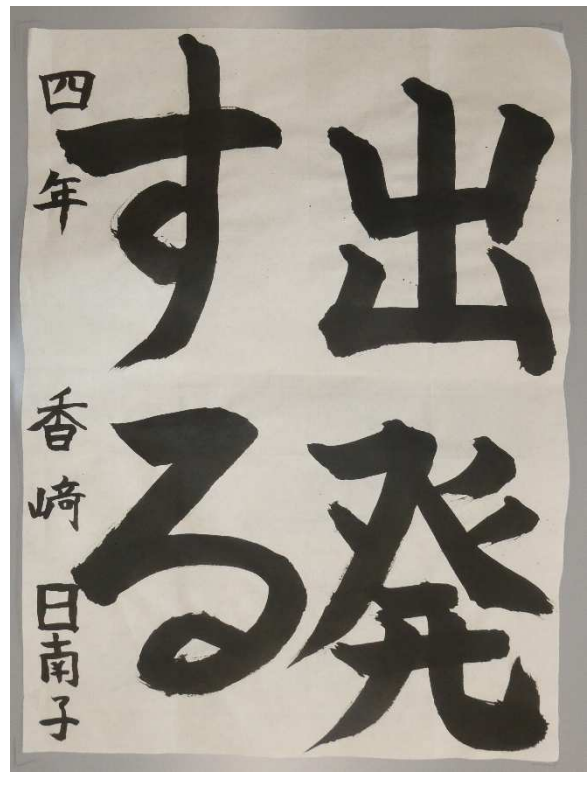 出発
する
四年 香﨑 日南子